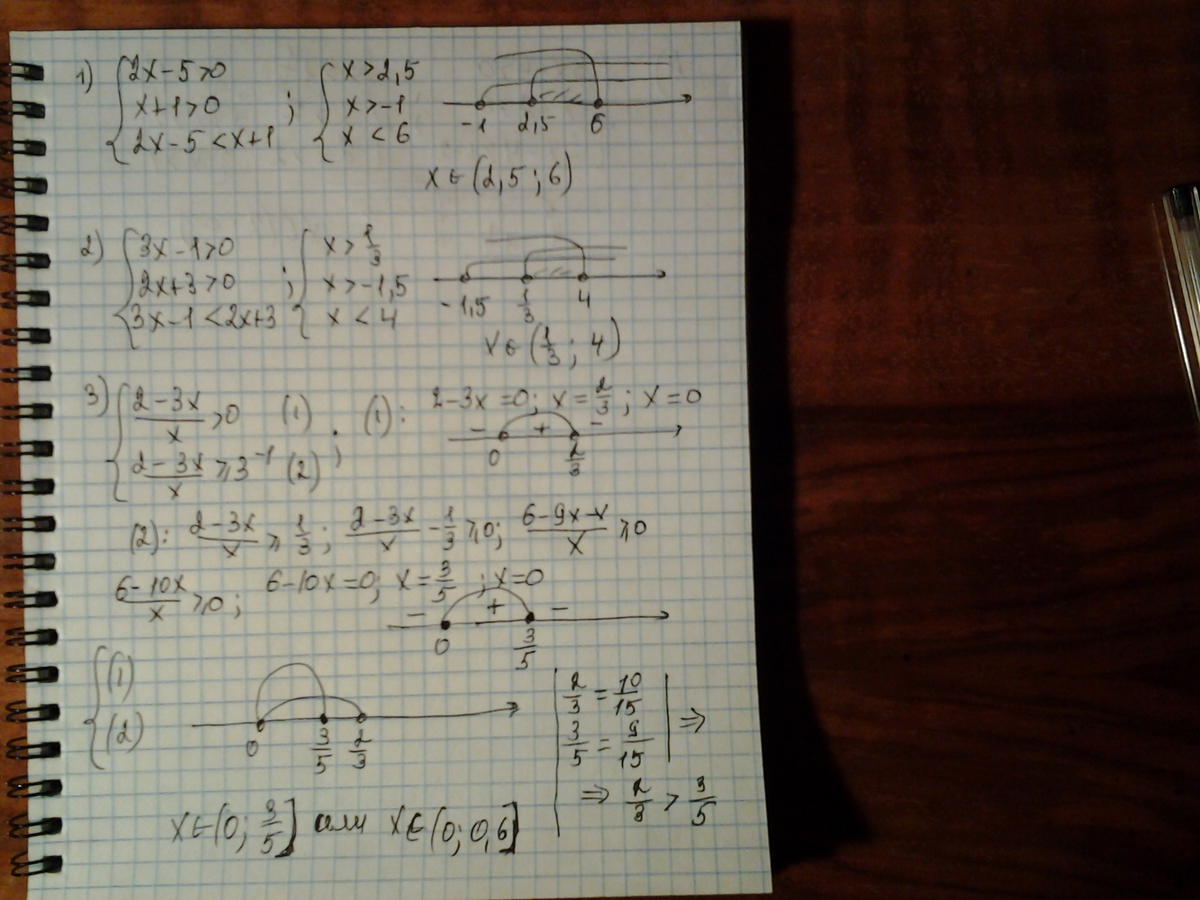 1) { 2x-5>0 ; { x>2,5
x+1>0 x>-1
2x-5<x+1 x<6
-1 2,5 6
x∈(2,5;6)
2) { 3x-1>0 ; { x>1/3
2x+3>0 x>-1,5
3x-1<2x+3 x<4
-1,5 1/3 4
x∈(1/3; 4)
3) { (2-3x)/x>0 (1) ; (1): 2-3x=0; x=2/3; x=0
- + -
0 2/3
(2-3x)/x⩾3⁻¹ (2)
(2): (2-3x)/x⩾1/3; (2-3x)/x-1/3⩾0; (6-9x-x)/x⩾0
(6-10x)/x⩾0; 6-10x=0; x=3/5; x=0
- + -
0 3/5
{ (1)
(2)
0 3/5 2/3
2/3=10/15
3/5=9/15 ⇒
⇒ 2/3>3/5
x∈(0; 3/5] или x∈(0; 0,6]